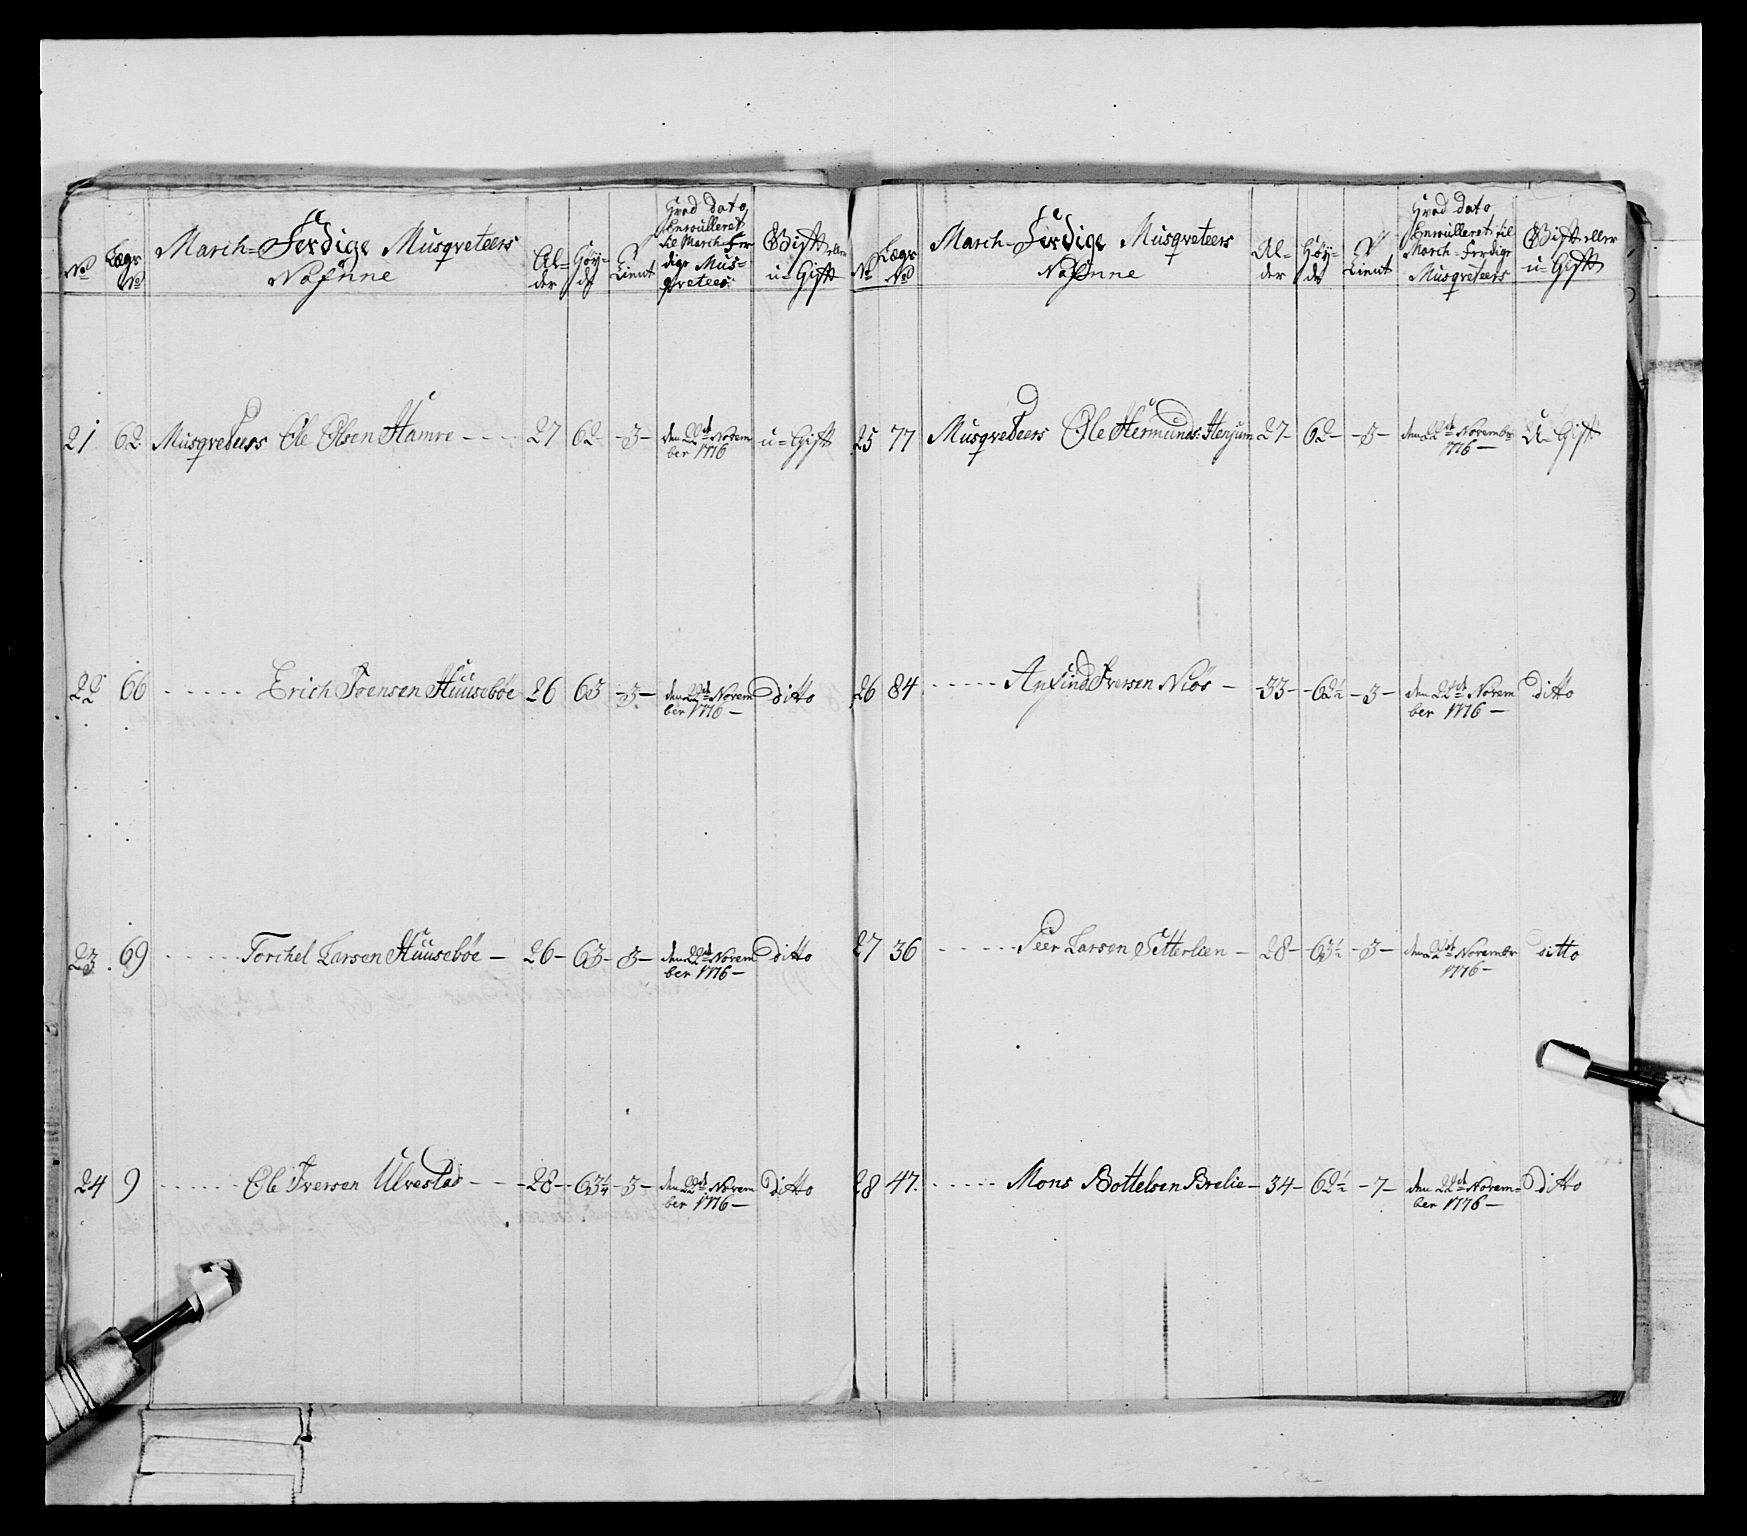 No
Lægs No
March-Ferdige Musqveteers Nafnne
Al-der
Høy-de
Tient
Hvad Dato Enroulleret til March-Fer dige Mus-qveteer
Gift eller u-Gift
21 62 Musqveteers Ole Olsen Hamre - - - 27 62 -3- den 22de Novem ber 1776 u-Gift
22 66 - - - - - Erich Joensen Huusebøe 26 63 -3- den 22de Novem ber 1776 - ditto
23 69 - - - - - Torchel Larsen Huusebøe - 26- 63- 3- den 22de Novem ber 1776 - ditto
24 9 - - - - - Ole Iversen Ulvestad - - - 28- 63 1/4 -3- den 22de Novem ber 1776 - ditto
No
Lægs No
March-Ferdige Musqveteers Nafnne
Al-der
Høy-de
Tient
Hvad Dato Enroulleret til March-Ferdige Musqveteers
Gift eller u-Gift
25 77 Musqveteers Ole Hermunds: Henjum 27- 62- -3- den 22de Novembr 1776 - U-Gift
26 84 - - - - - Anfind Iversen Niøs - 33- 62 1/2 -3- den 22de Novem ber 1776 - ditto
27 36 - - - - - Peer Larsen Sitterlien - 28- 63 1/2 -3- den 22de Novembr 1776 - ditto
28 47. - - - - - Mons Bottelsen Brelie - 34- 62 1/2 -7- den 22de Novem-ber 1776 - ditto